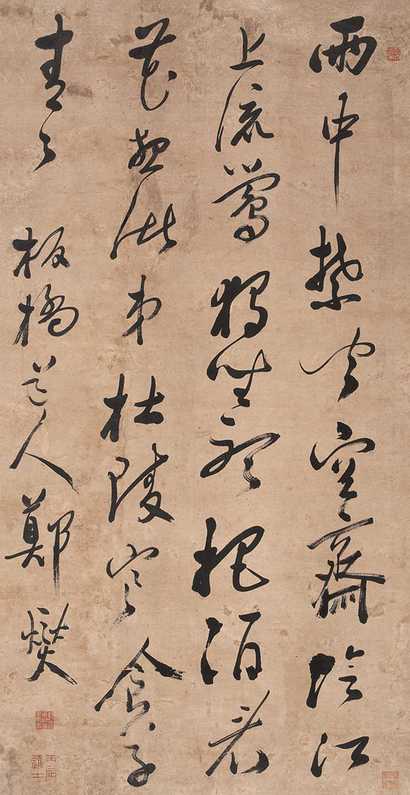 雨中禁火空齋冷江
上流鶯獨坐聽把酒看
花想諸弟杜陵寒食草
青々
板橋道人鄭燮